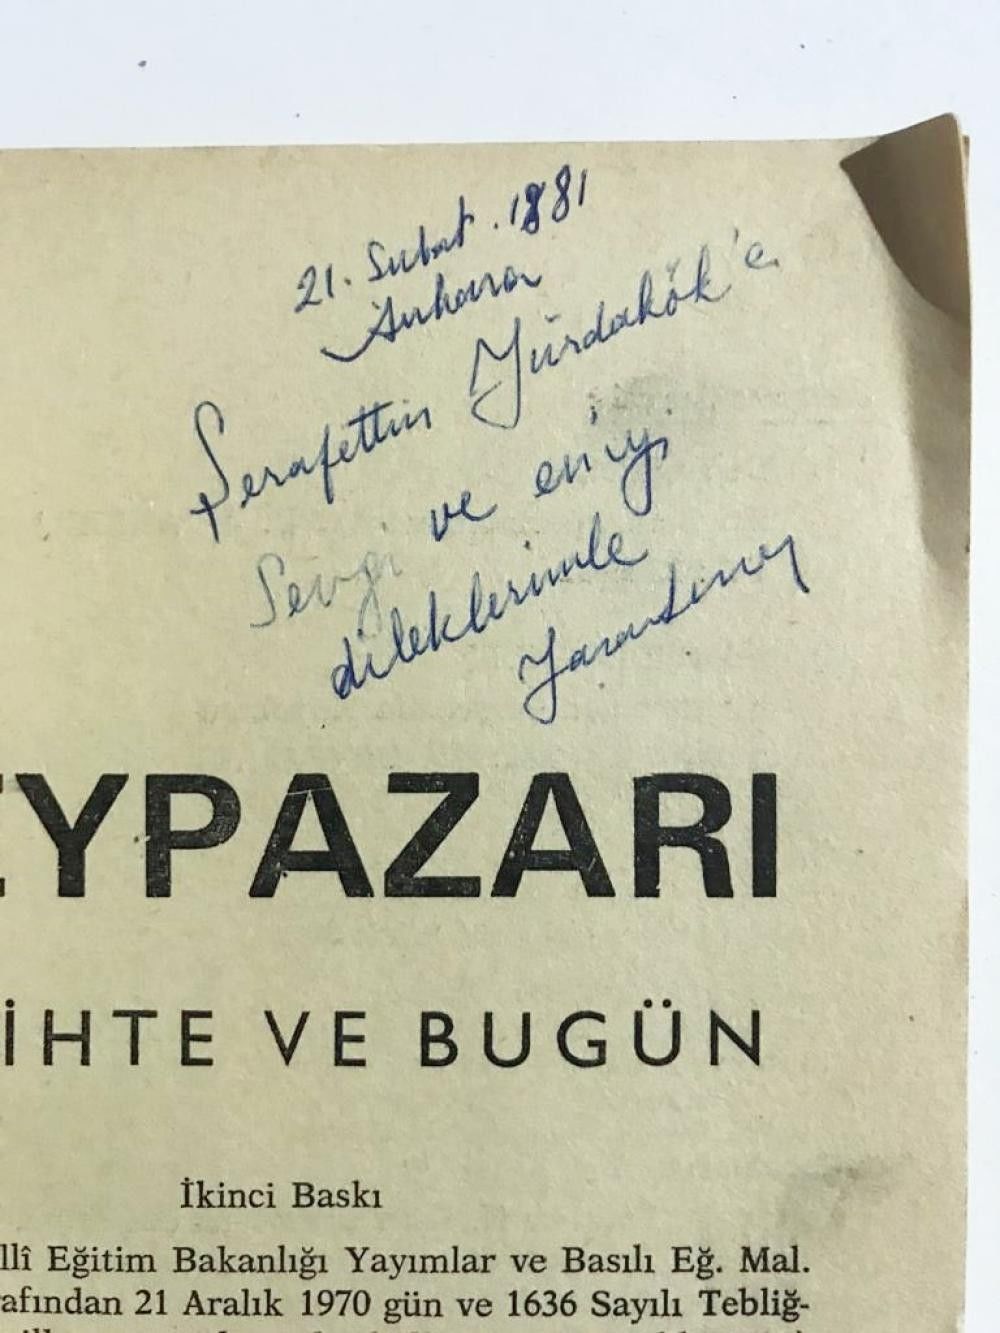 21. Şubat. 1981
Ankara
Şerafettin Yürdakök'e
Sevgi ve en iyi
dileklerimle
EYPAZARI
İHTE VE BUGÜN
İkinci Baskı
llî Eğitim Bakanlığı Yayımlar ve Basılı Eğ. Mal.
afından 21 Aralık 1970 gün ve 1636 Sayılı Tebliğ-